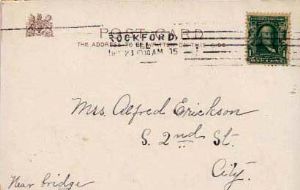 POST CARD
ROCKFORD
THE ADDRESS TO BE WRITTEN ON THIS SIDE
Mrs Alfred Erickson
S. 2nd St.
City.
Near bridge